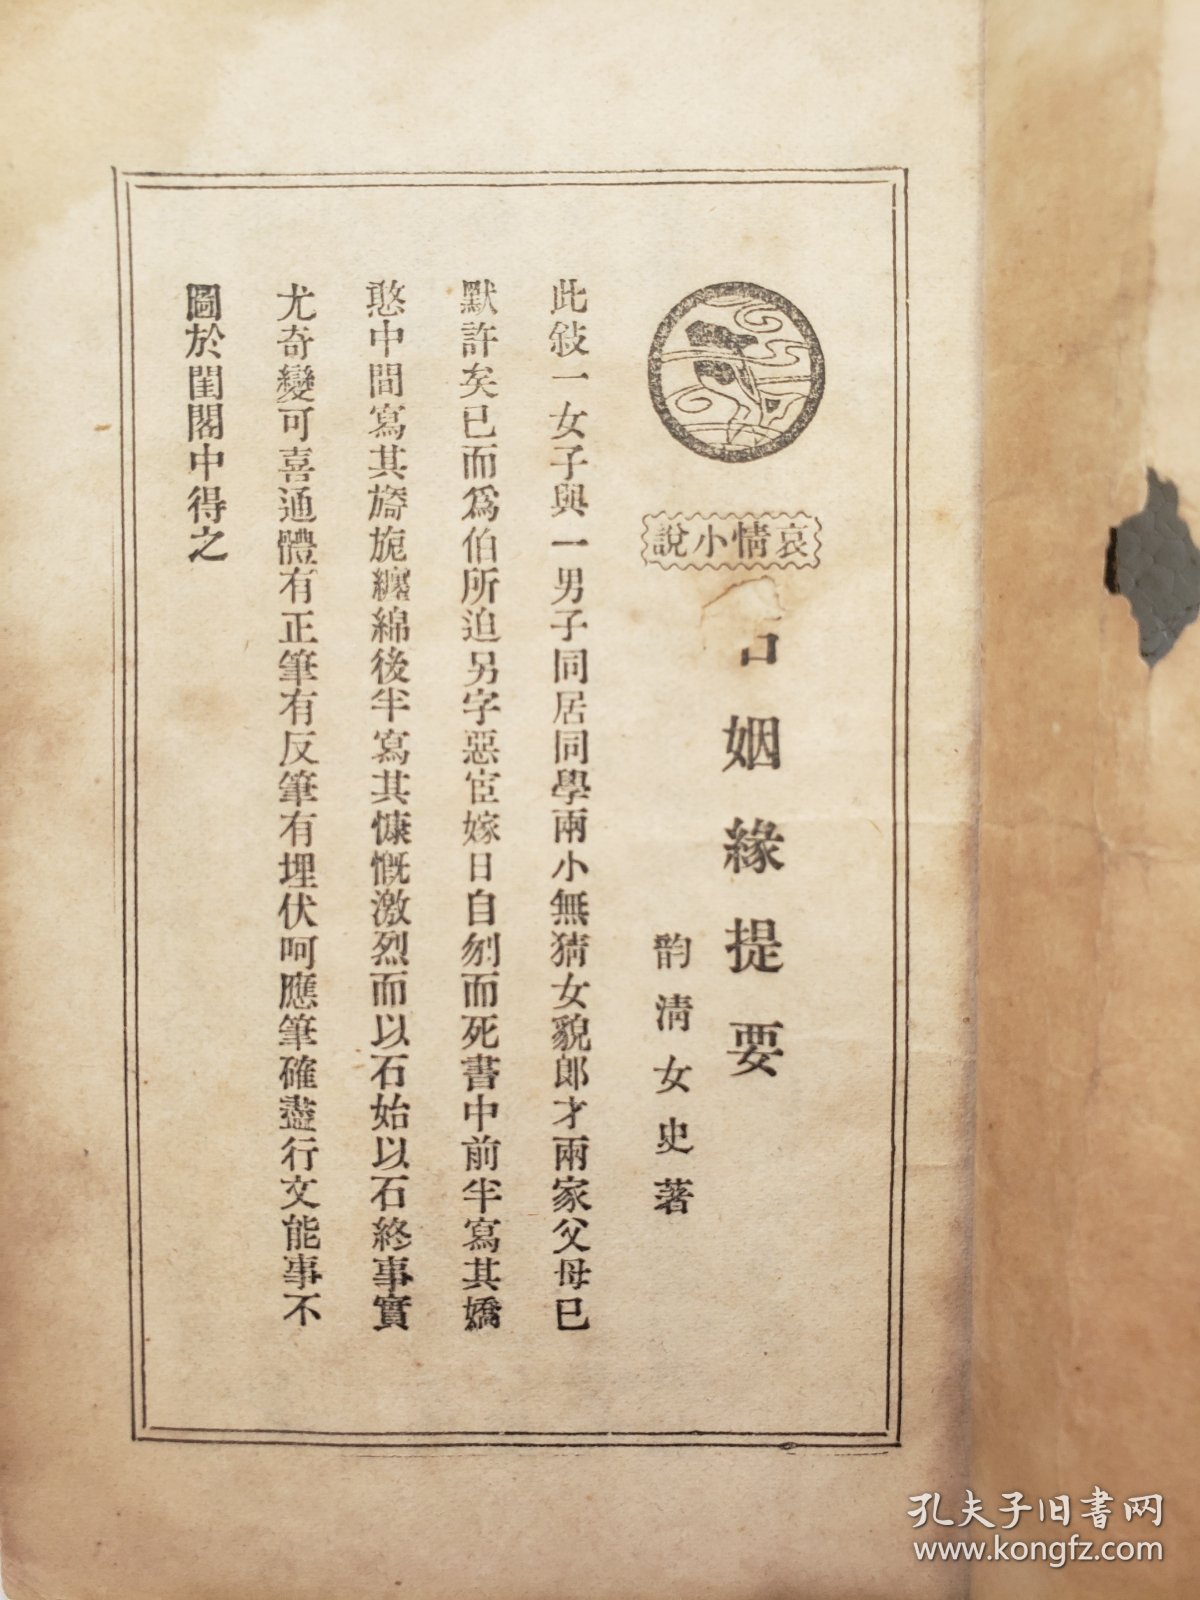 哀情小說
姻緣提要
韵清女史著
此敍一女子與一男子同居同學兩小無猜女貌郎才兩家父母已
默許矣已而爲伯所迫另字惡宦嫁日自刎而死書中前半寫其嬌
憨中間寫其旖旎纏綿後半寫其慷慨激烈而以石始以石終事實
尤奇變可喜通體有正筆有反筆有埋伏呵應筆確盡行文能事不
圖於閨閣中得之
孔夫子旧书网
www.kongfz.com